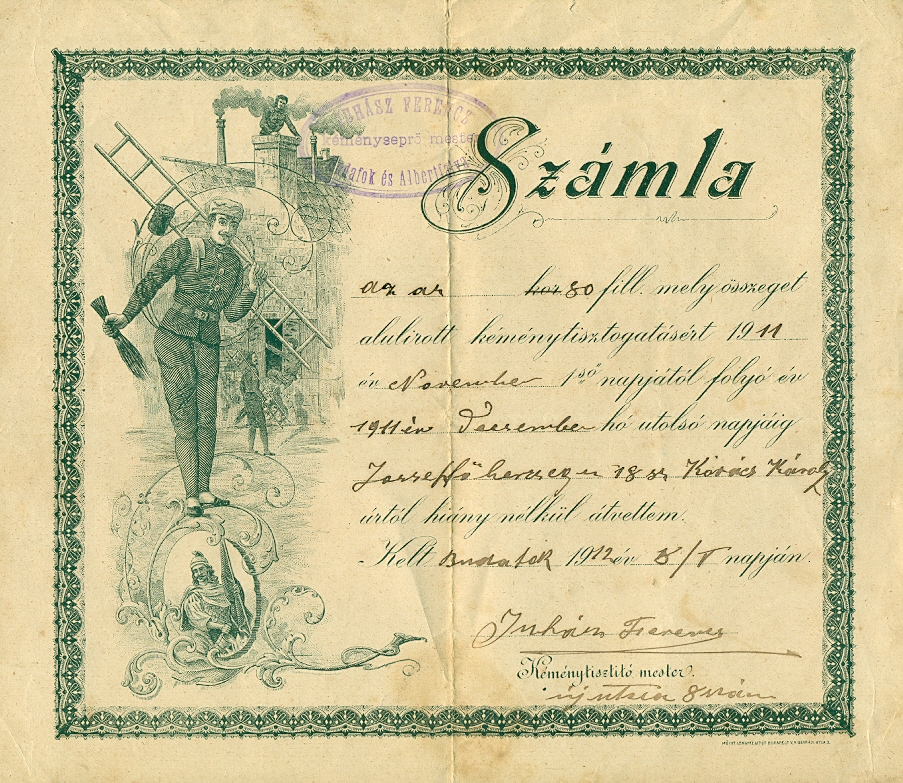 JUHÁSZ FERENCZ
kéményseprő mester
Budafok és Albertfalva
Számla
az az kor 80 fill. mely összeget
alulirott kéménytisztogatásért 1911
év November 1ső napjától folyó év
1911 év Deczember hó utolsó napjáig
József főherczeg u 18 sz Kovács Károly
úrtól hiány nélkül átvettem.
Kelt Budafok 1912 év I napján.
Juhász Ferencz
Kéménytisztitó mester.
új utcza 8 szám